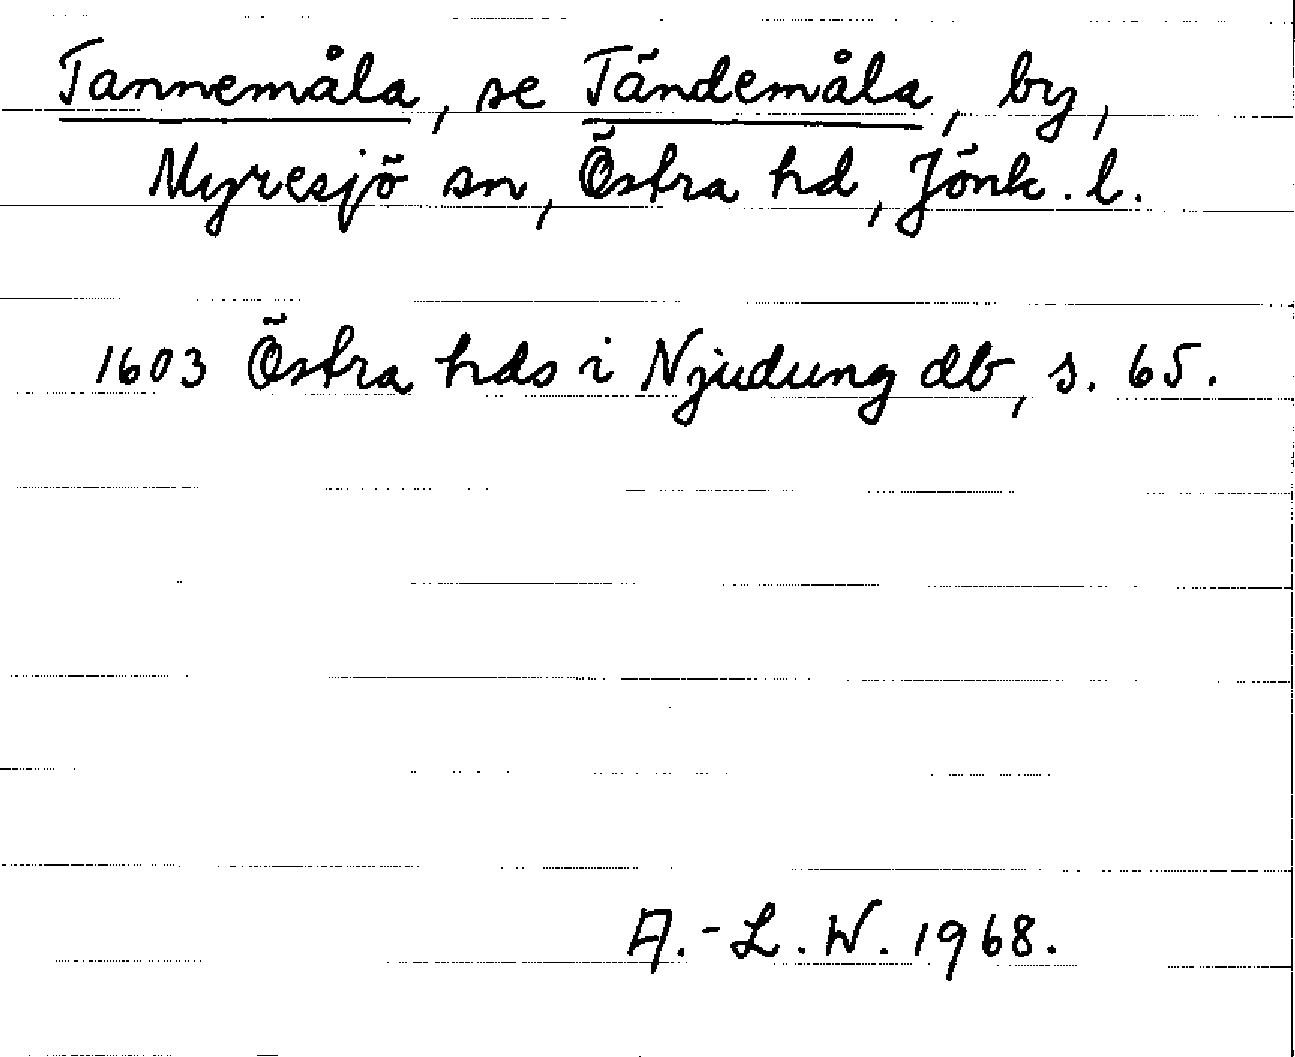 Tannemåla, se Tändemåla, by,
Myresjö sn, Östra hd, Jönk. l.
1603 Östra hds i Njudung db, s. 65.
A.-L. W. 1968.